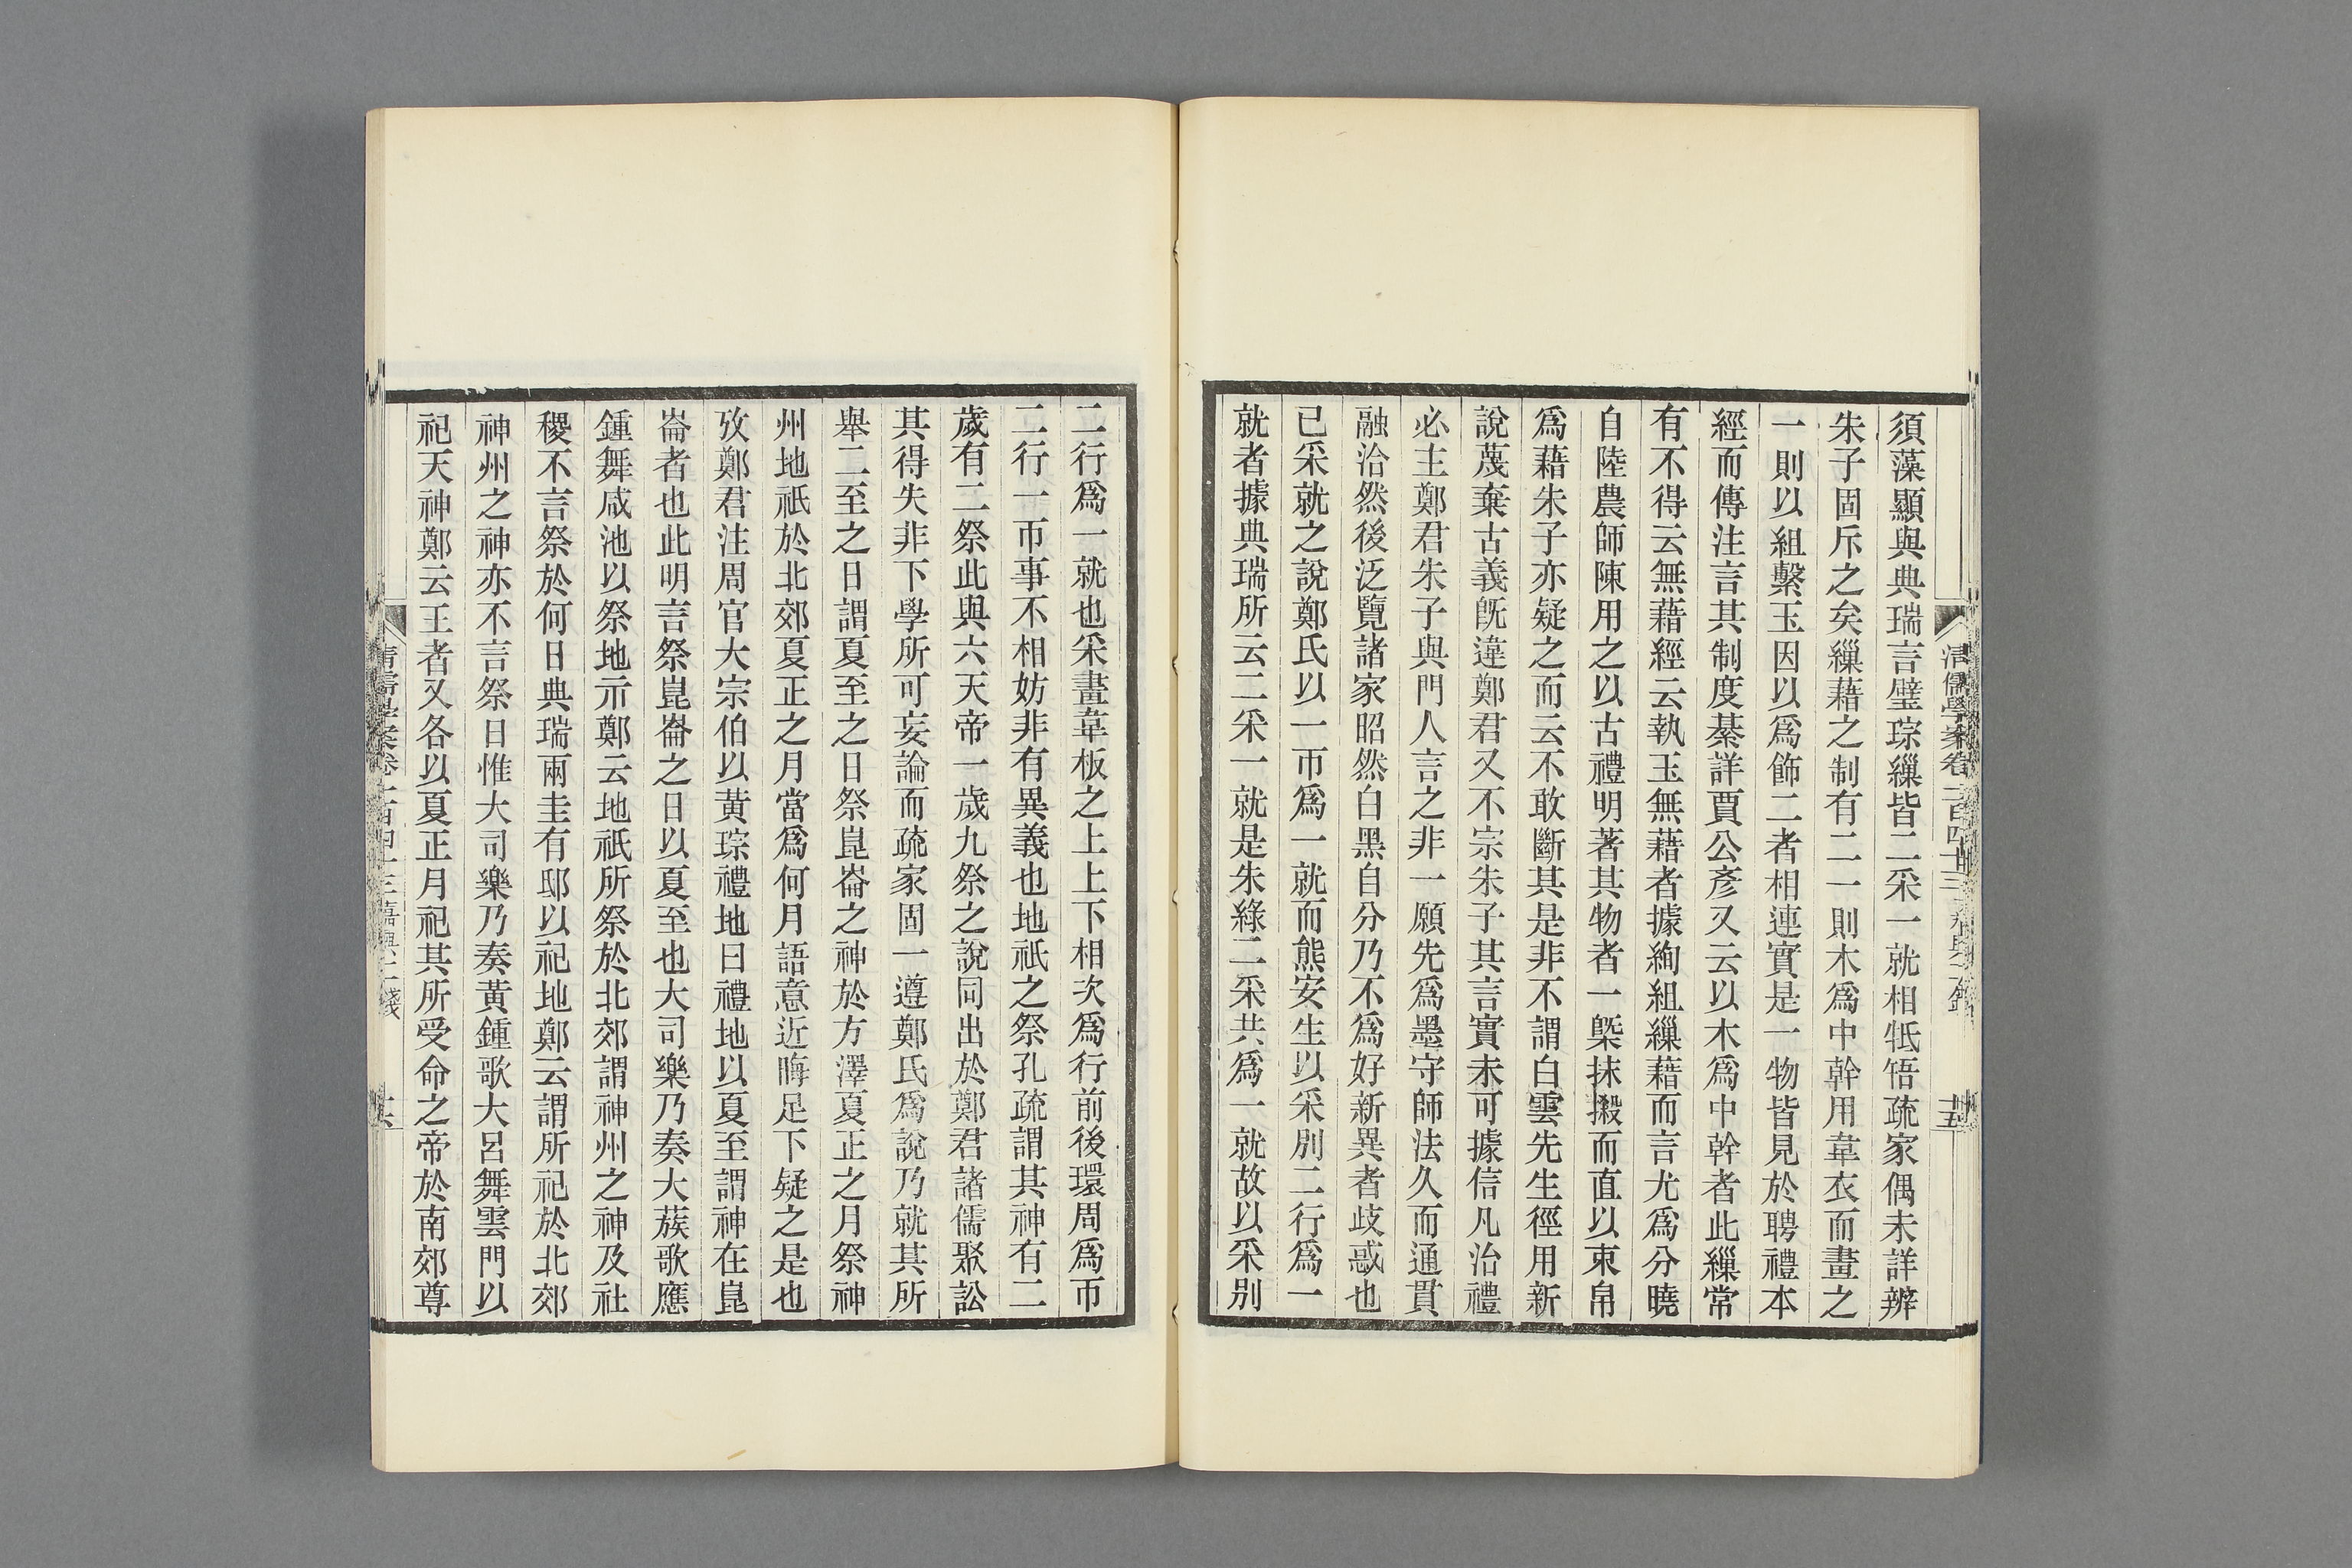 須藻顯與典瑞言璧琮繅皆二采一就相牴牾疏家偶未詳辨
朱子固斥之矣繅藉之制有二一則木爲中幹用韋衣而畫之
一則以組繫玉因以爲飾二者相連實是一物皆見於聘禮本
經而傳注言其制度綦詳賈公彥又云以木爲中幹者此繅常
有不得云無藉經云執玉無藉者據絢組繅藉而言尤爲分曉
自陸農師陳用之以古禮明著其物者一槩抹摋而直以束帛
爲藉朱子亦疑之而云不敢斷其是非不謂白雲先生徑用新
說蔑棄古義旣違鄭君又不宗朱子其言實未可據信凡治禮
必主鄭君朱子與門人言之非一願先爲墨守師法久而通貫
融洽然後泛覽諸家昭然白黑自分乃不爲好新異者歧惑也
已采就之說鄭氏以一帀爲一就而熊安生以采別二行爲一
就者據典瑞所云二采一就是朱綠二采共爲一就故以采别
二行爲一就也采畫韋板之上上下相次爲行前後環周爲帀
二行一帀事不相妨非有異義也地祇之祭孔疏謂其神有二
歲有二祭此與六天帝一歲九祭之說同出於鄭君諸儒聚訟
其得失非下學所可妄論而疏家固一遵鄭氏爲說乃就其所
舉二至之日謂夏至之日祭崑崙之神於方澤夏正之月祭神
州地祇於北郊夏正之月當爲何月語意近晦足下疑之是也
攷鄭君注周官大宗伯以黃琮禮地曰禮地以夏至謂神在崑
崙者也此明言祭崑崙之日以夏至也大司樂乃奏大蔟歌應
鍾舞咸池以祭地示鄭云地祇所祭於北郊謂神州之神及社
稷不言祭於何日典瑞兩圭有邸以祀地鄭云謂所祀於北郊
神州之神亦不言祭日惟大司樂乃奏黃鍾歌大呂舞雲門以
祀天神鄭云王者又各以夏正月祀其所受命之帝於南郊尊